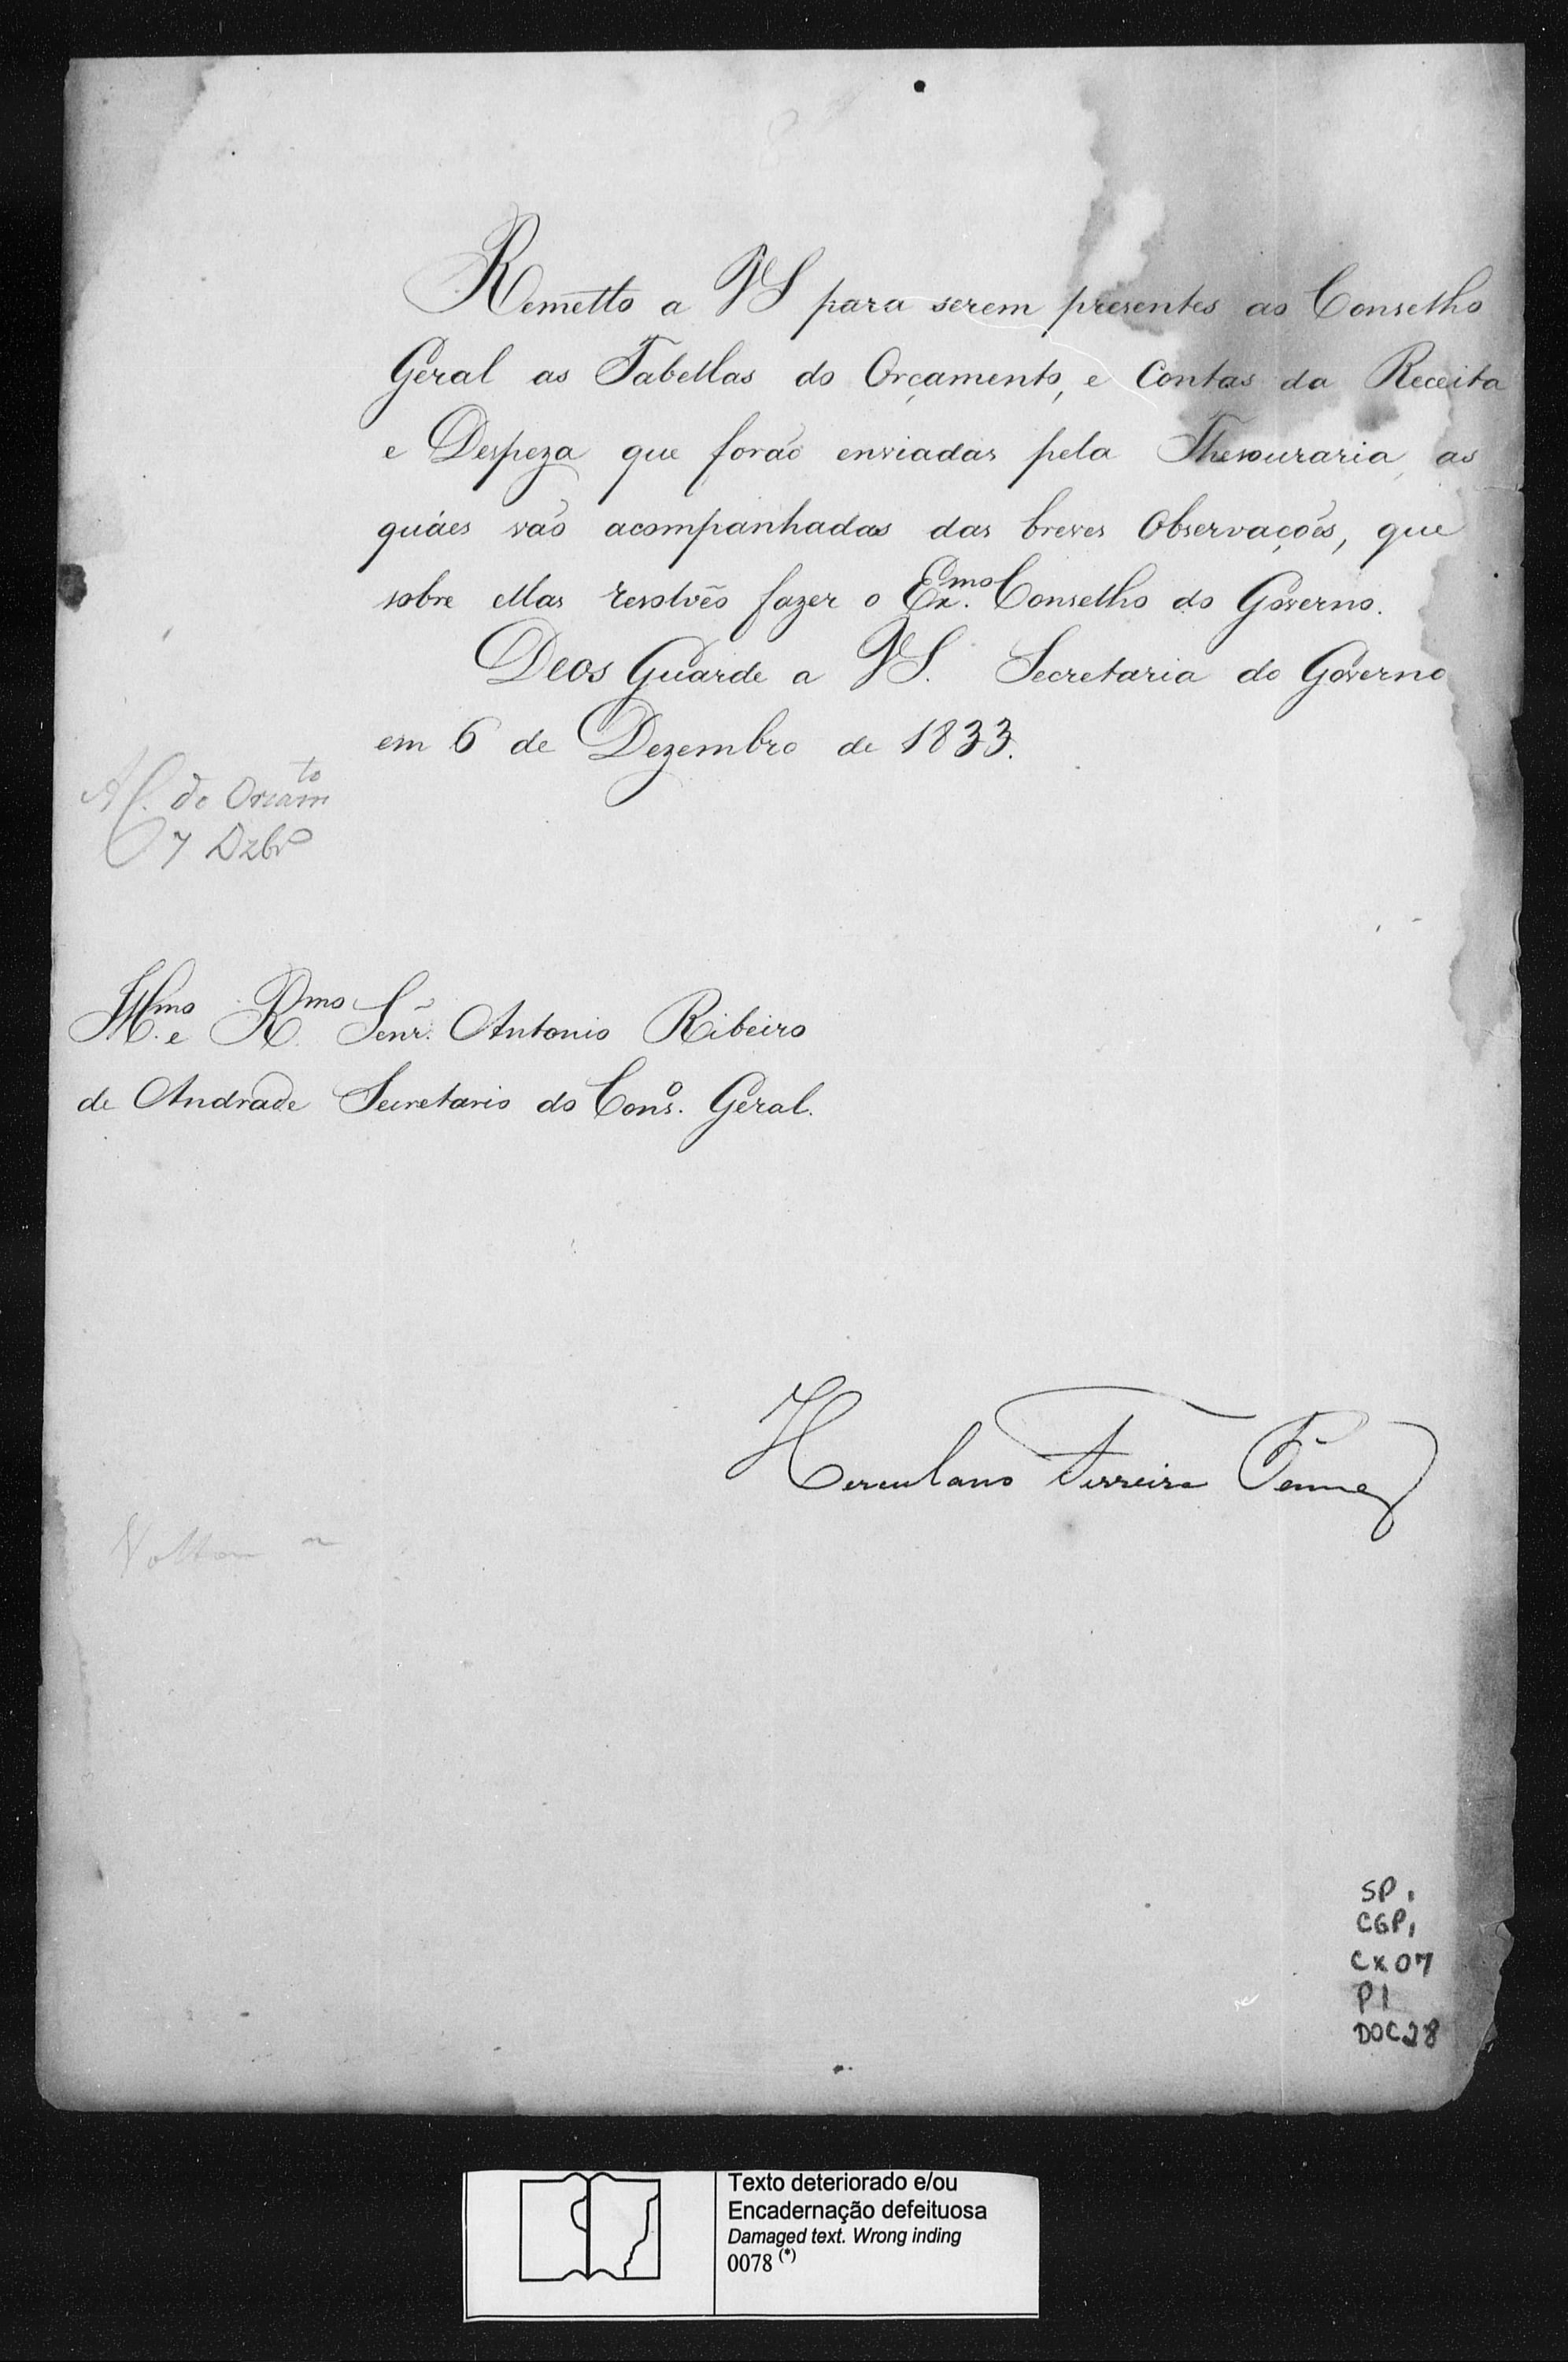 Remetto a VS para serem presentes ao Conselho
Geral as Tabellas do Orçamento, e Contas da Receita
e Despeza que forão enviadas pela Thesouraria, as
quáes vão acompanhadas das breves Observações, que
sobre ellas resolvêo fazer o Ex.mo Conselho do Governo.
Deos Guarde a VS. Secretaria do Governo
em 6 de Dezembro de 1833.
Á C. do Orcamto
7 Dzbro
Ill.mo e R.mo Senr. Antonio Ribeiro
de Andrade Secretario do Conso. Geral.
Herculano Ferreira Penna
SP.
CGP1
CX07
P1
DOC28
Texto deteriorado e/ou
Encadernação defeituosa
Damaged text. Wrong inding
0078 (*)